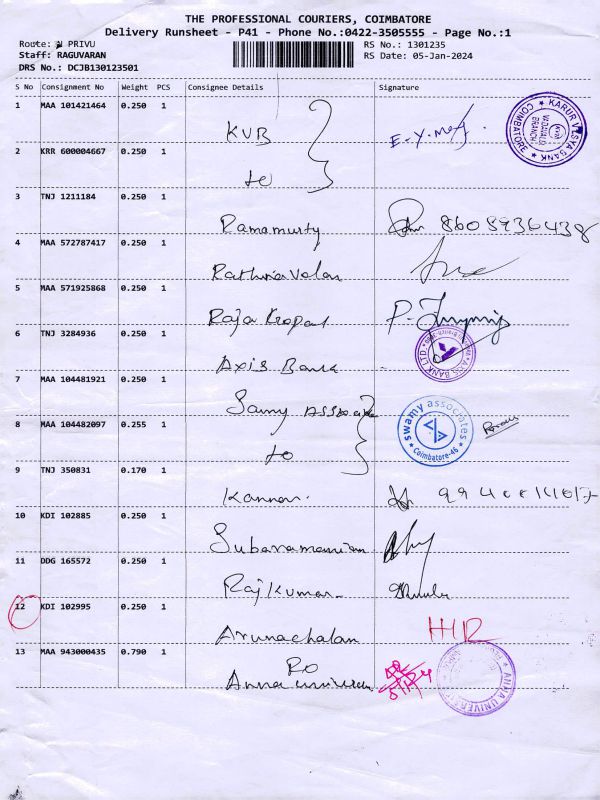 THE PROFESSIONAL COURIERS, COIMBATORE
Delivery Runsheet - P41 - Phone No.:0422-3505555 - Page No.:1
Route: PRIVU RS No.: 1301235
Staff: RAGUVARAN RS Date: 05-Jan-2024
DRS No.: DCJB130123501
S No Consignment No Weight PCS Consignee Details Signature
1 MAA 101421464 0.250 1
KVB
KARUR VYSYA BANK
COIMBATORE
2 KRR 600004667 0.250 1
to
3 TNJ 1211184 0.250 1
Ramamurty 8608936438
4 MAA 572787417 0.250 1
Rathnavalan
5 MAA 571925868 0.250 1
Raja Gopal
6 TNJ 3284936 0.250 1
Axis Bank
AXIS BANK LTD.
7 MAA 104481921 0.250 1
Samy Associate
swamy associates
Coimbatore-46
8 MAA 104482097 0.255 1
to
9 TNJ 350831 0.170 1
Kannan.
10 KDI 102885 0.250 1
Subaramanian
11 DDG 165572 0.250 1
Rajkumar
12 KDI 102995 0.250 1
Arunachalan
13 MAA 943000435 0.790 1
RO
Anna univers
ANNA UNIVERSI